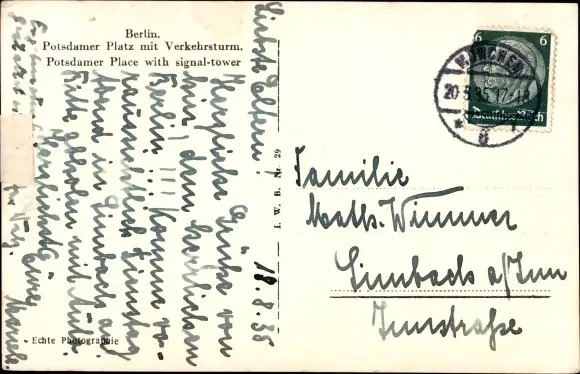 Berlin.
Potsdamer Platz mit Verkehrsturm.
Potsdamer Place with signal-tower
Liebste Eltern!
Herzliche Grüße von
hier, dem herrlichen
Berlin!!! Komme vo-
raussichtlich Dienstag
Abend in Simbach an
Bitte abholen mit Auto.
Herzlichst
Euer
18.8.35
I. W. B. Nr. 29
Echte Photographie
6 6
Deutsches Reich
MÜNCHEN
20.8.35.17-18
* 8
Familie
Math. Wimmer
Simbach a/Inn
Innstraße